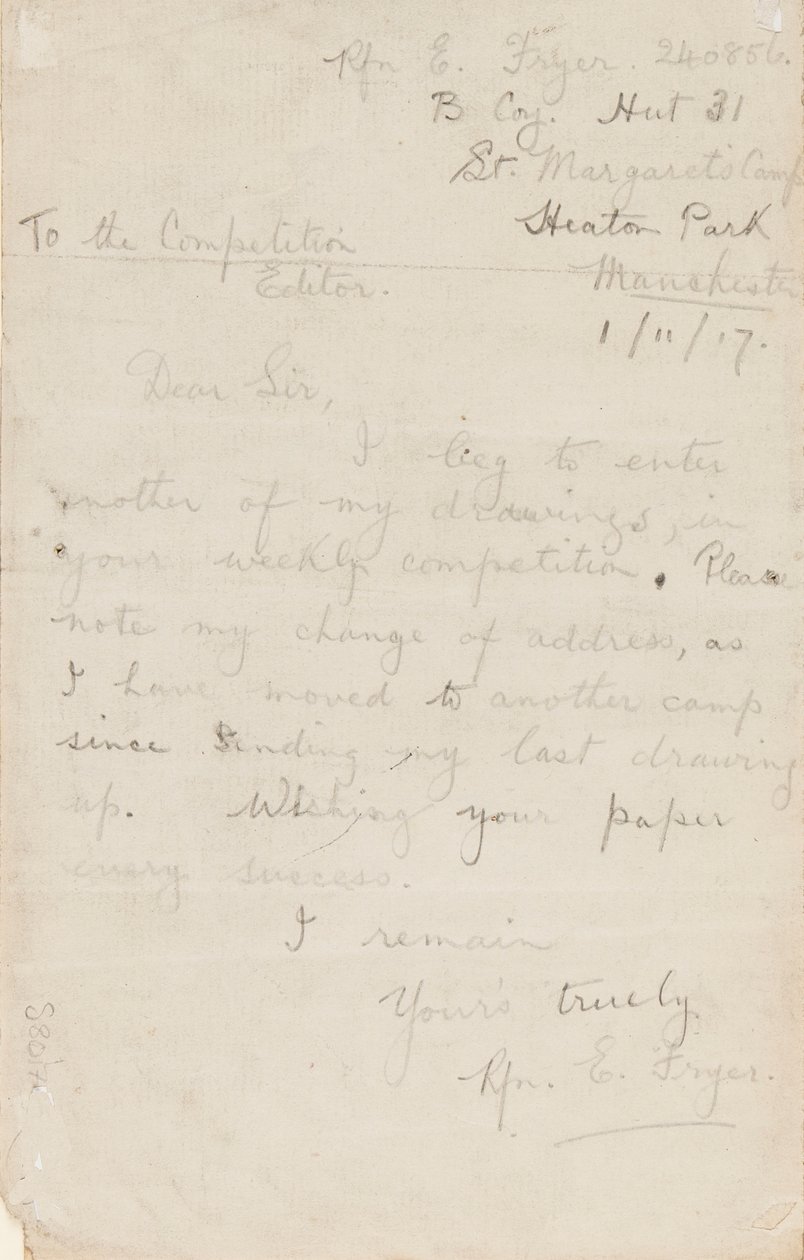 Rfn E. Fryer. 240856.
B Coy. Hut 31
St. Margaret's Camp
Heaton Park
Manchester
1/11/17.
To the Competition
Editor.
Dear Sir,
I beg to enter
another of my drawings, in
your weekly competition. Please
note my change of address, as
I have moved to another camp
since sending my last drawing
up. Wishing your paper
every success.
I remain
Your's truely
Rfn. E. Fryer.